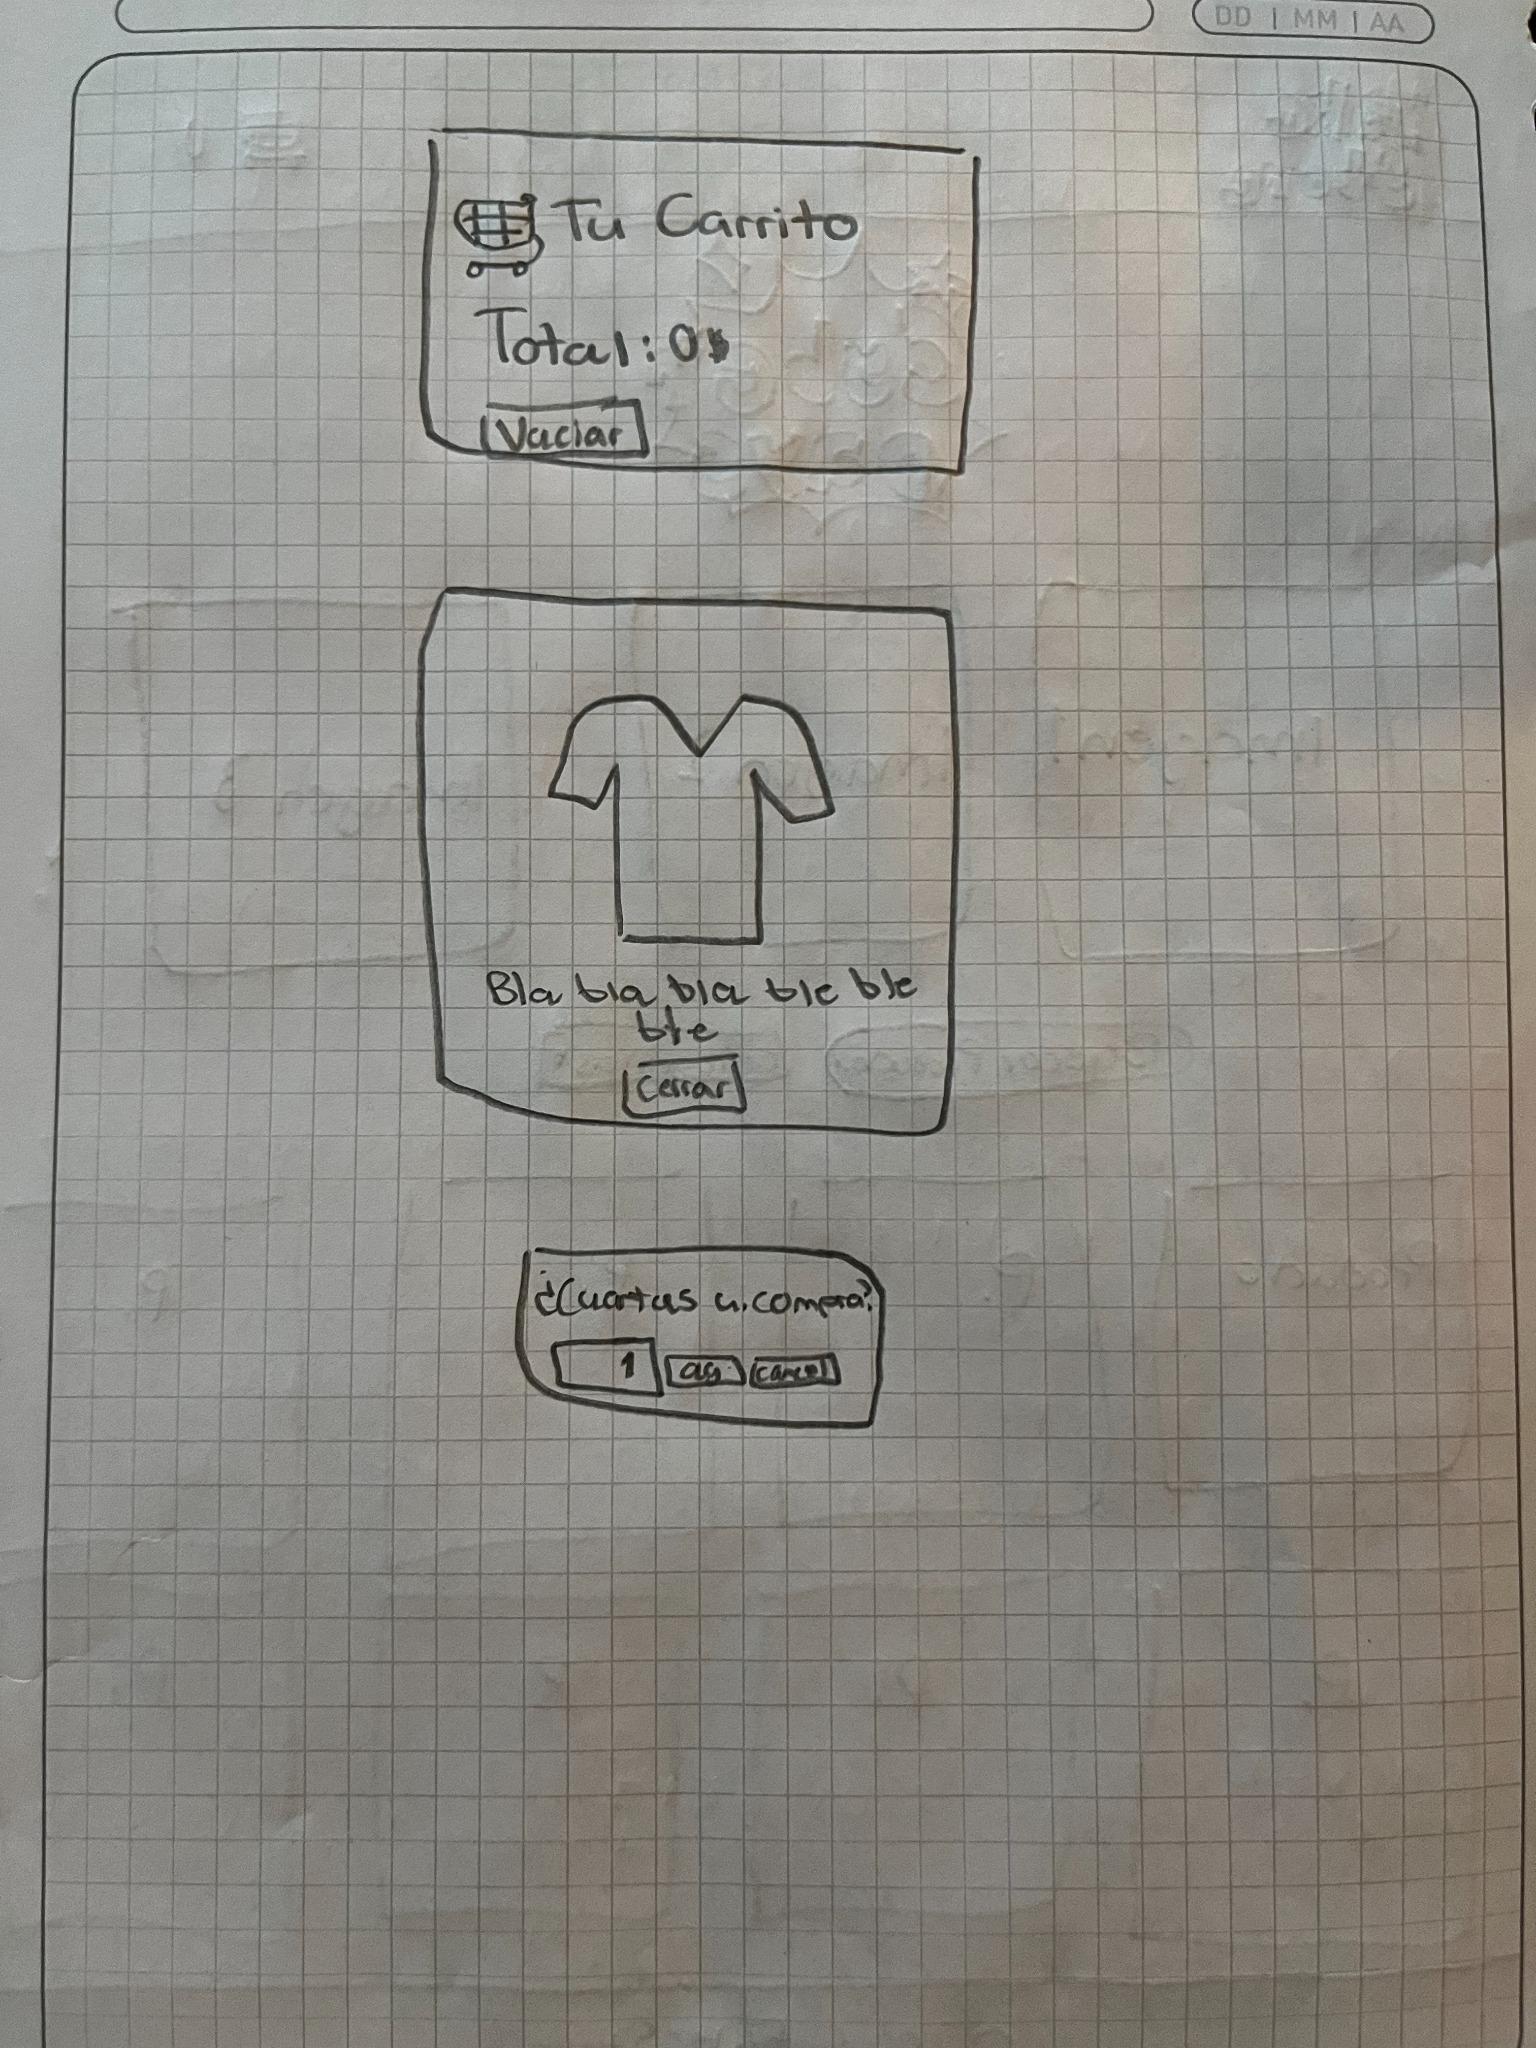 DD | MM | AA
Tu Carrito
Total: 0$
Vaciar
Bla bla bla ble ble
ble
Cerrar
¿Cuantas u. compra?
1 ag. cancel